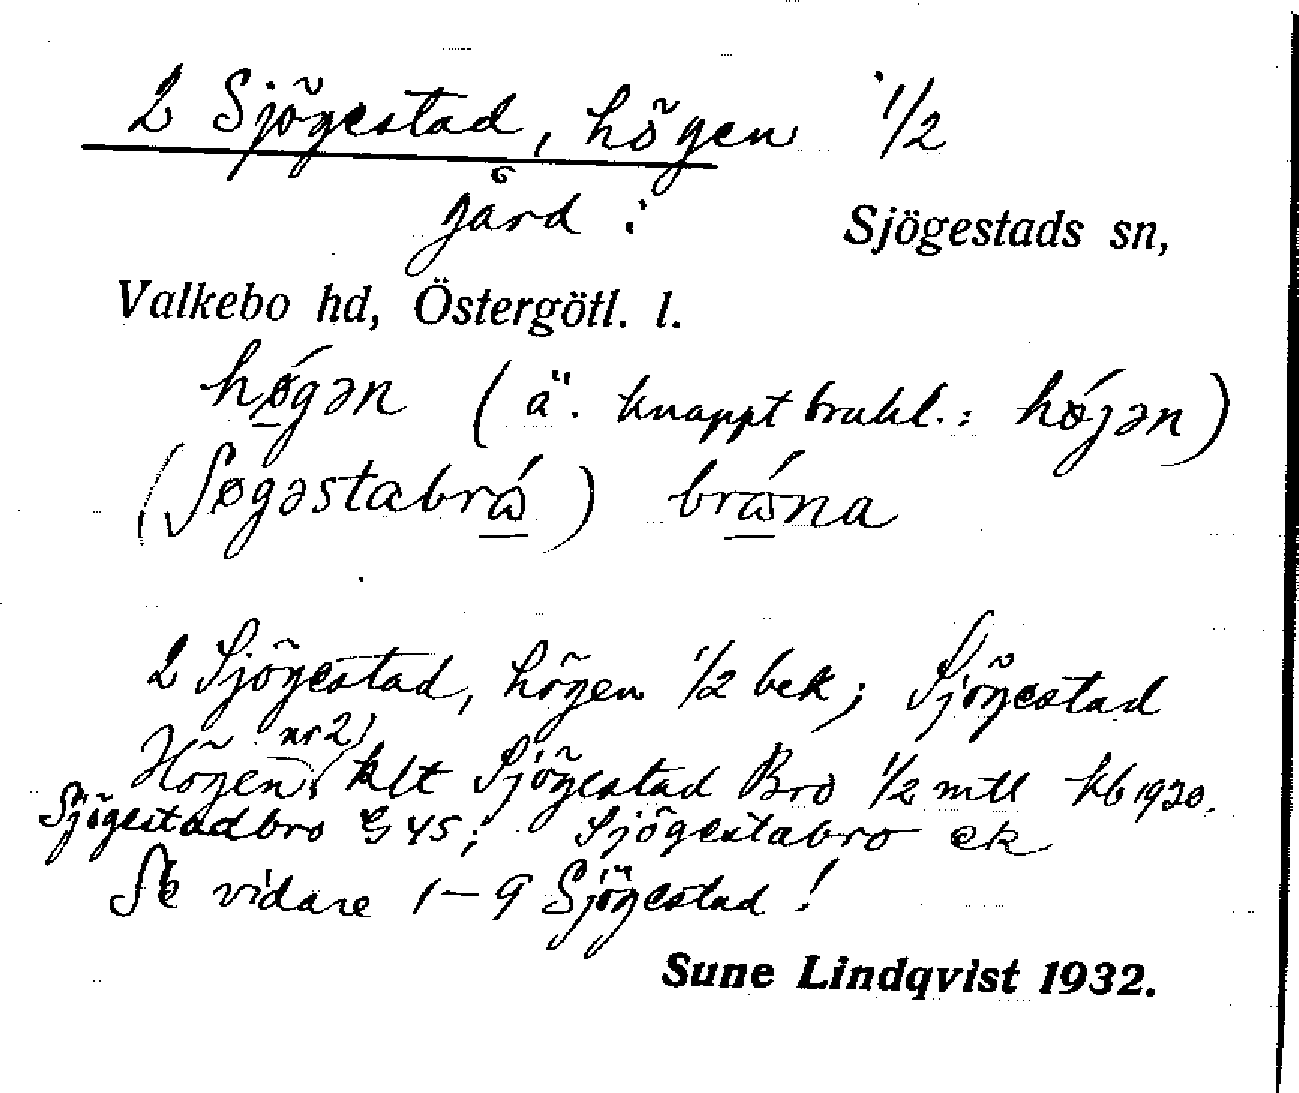 2 Sjögestad, högen 1/2
gård i
Sjögestads sn,
Valkebo hd, Östergötl. l.
hǿgən (ä. knappt brukl.: hǿjən)
(ʃøgəstabrɷ́) brɷ́na
2 Sjögestad, högen 1/2 bek; Sjögestad
nr 2)
Högen, klt Sjögestad Bro 1/2 mtl kb 1930.
Sjögestadbro G 45; Sjögestabro ek
Se vidare 1–9 Sjögestad!
Sune Lindqvist 1932.